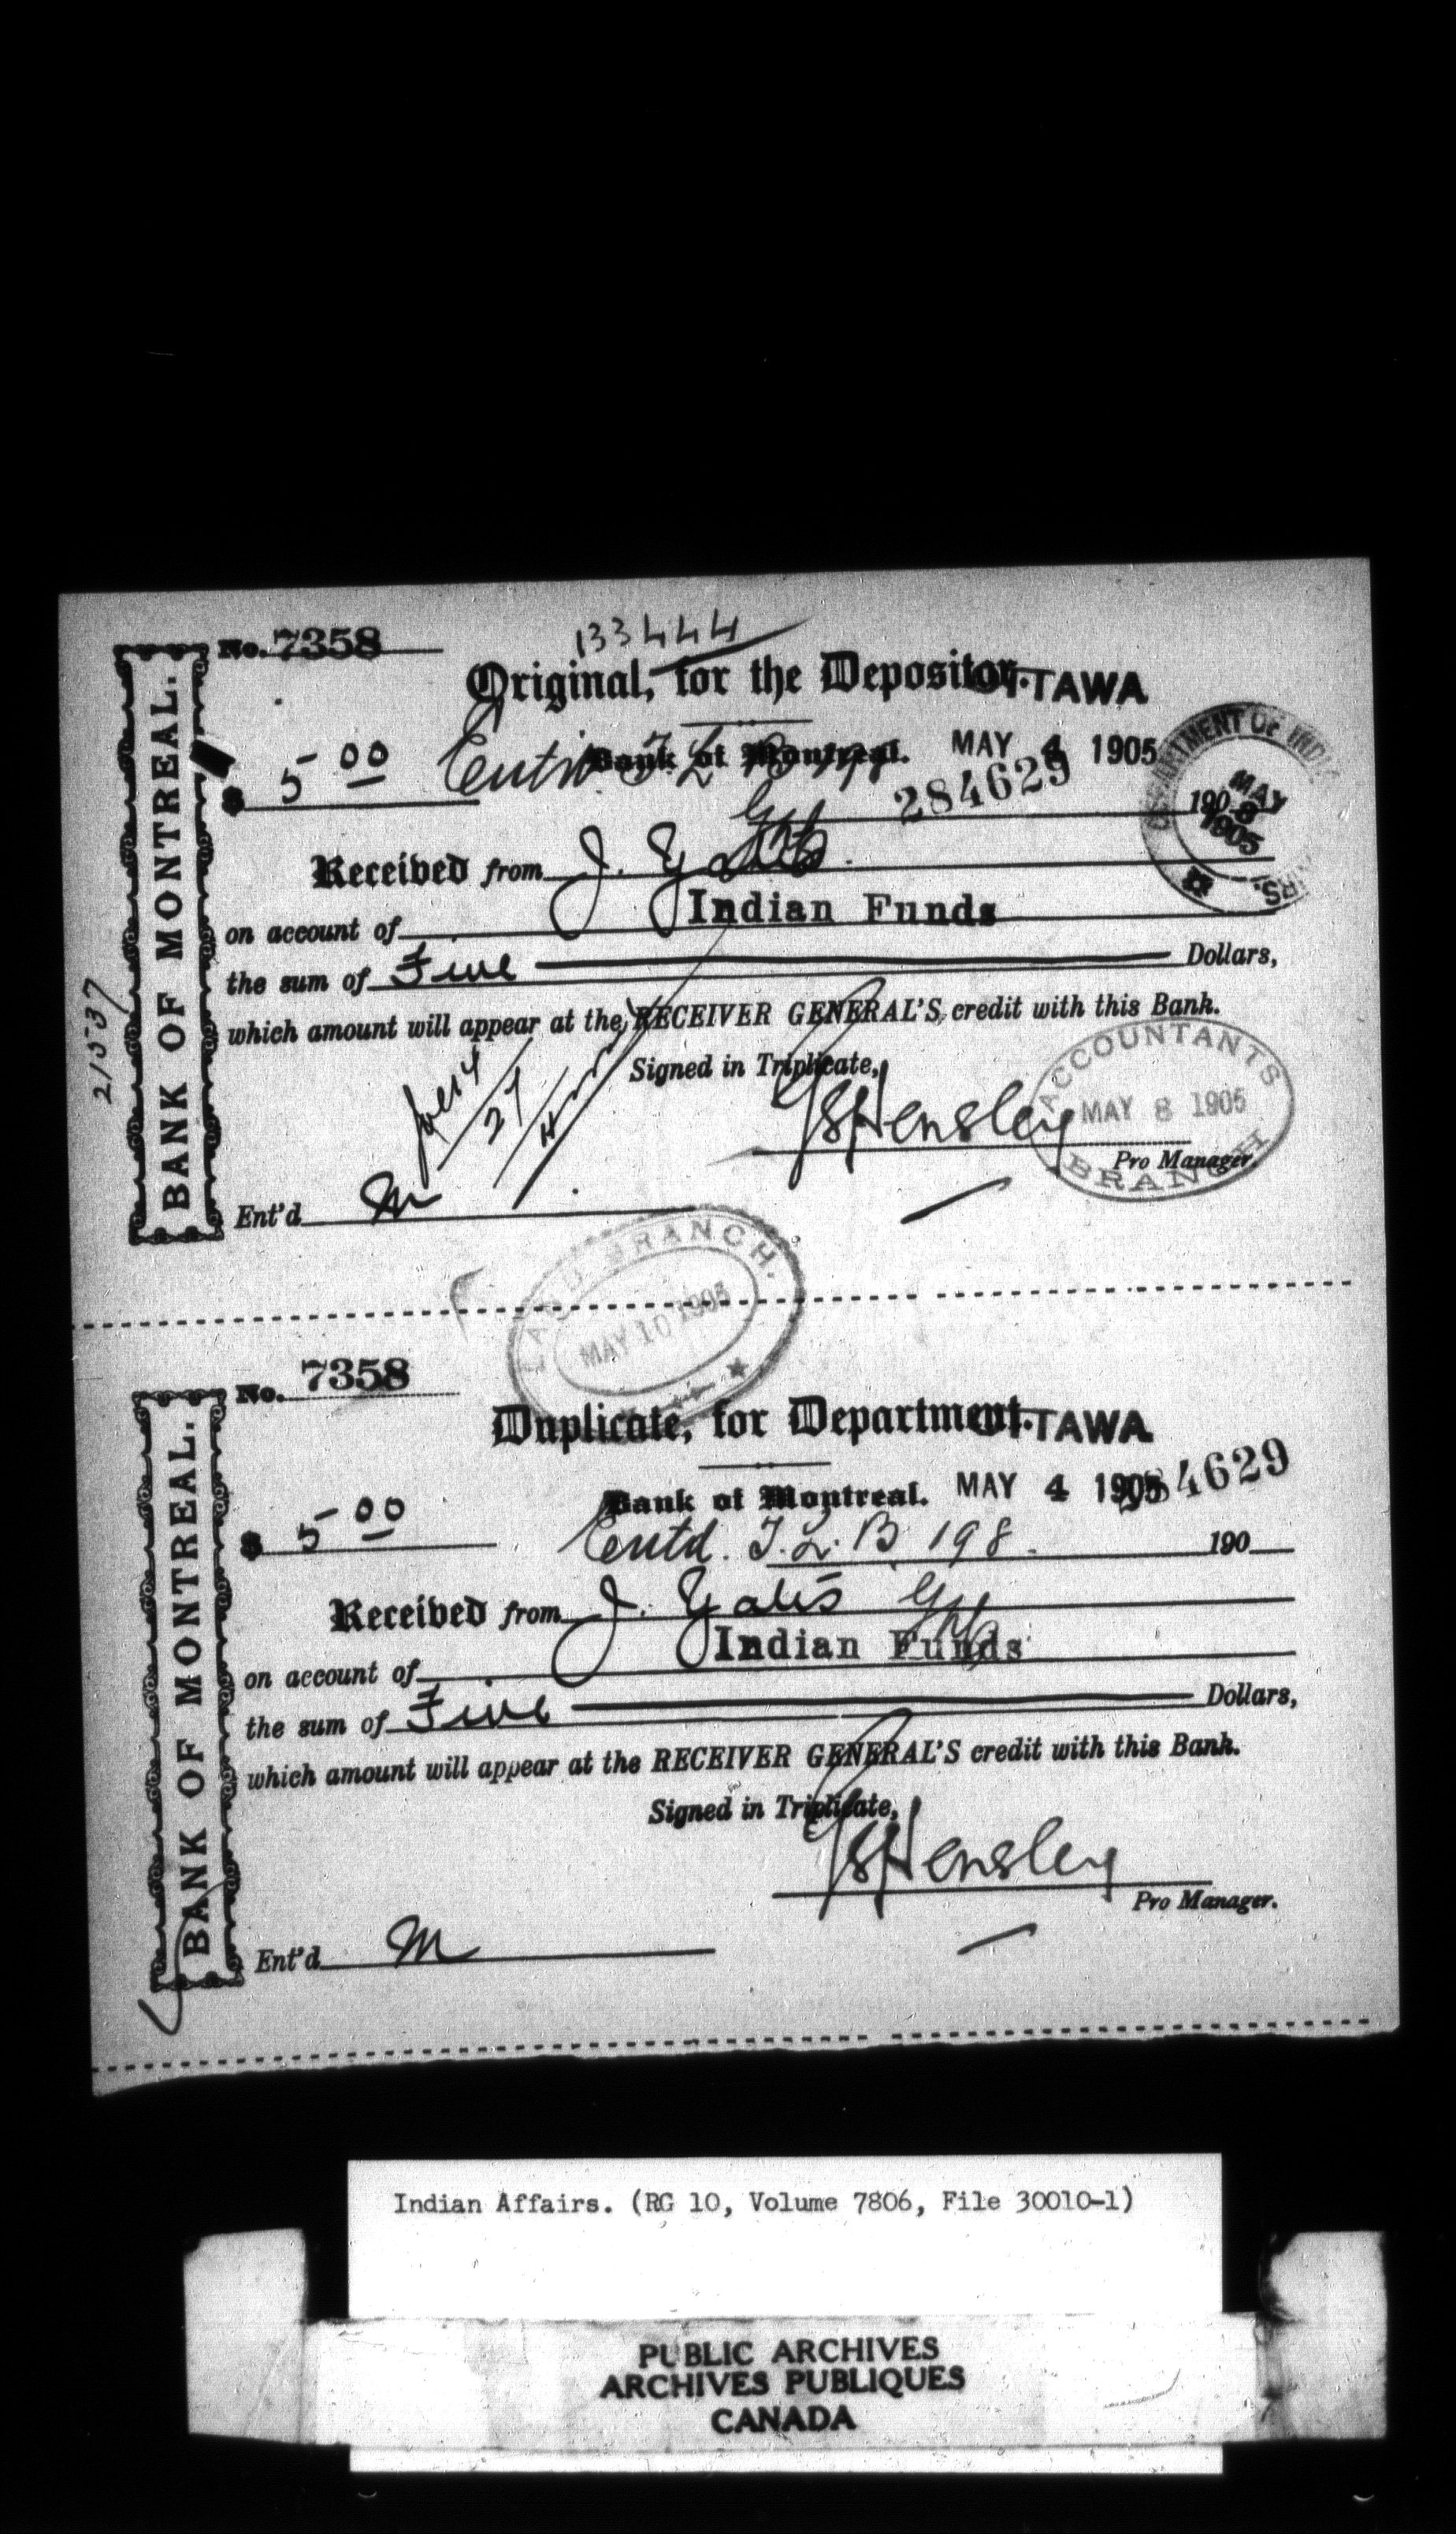 No. 7358
133444
Original, for the Depositor.
OTTAWA
BANK OF MONTREAL.
$ 5 00
Bank of Montreal.
MAY 4 1905
284629
190
DEPARTMENT OF INDIAN AFFAIRS.
MAY 8 1905
Received from J. Yates
on account of Indian Funds
the sum of Five Dollars,
which amount will appear at the RECEIVER GENERAL'S credit with this Bank.
Signed in Triplicate,
Hensley
Pro Manager.
ACCOUNTANTS BRANCH
MAY 8 1905
21537
Ent'd M
LAND BRANCH.
MAY 10 1905
No. 7358
Duplicate, for Department.
OTTAWA
BANK OF MONTREAL.
$ 5 00
Bank of Montreal.
MAY 4 1905
284629
Entd. I. L. B 198.
190
Received from J. Yates
on account of Indian Funds
the sum of Five Dollars,
which amount will appear at the RECEIVER GENERAL'S credit with this Bank.
Signed in Triplicate,
Hensley
Pro Manager.
Ent'd M
Indian Affairs. (RG 10, Volume 7806, File 30010-1)
PUBLIC ARCHIVES
ARCHIVES PUBLIQUES
CANADA